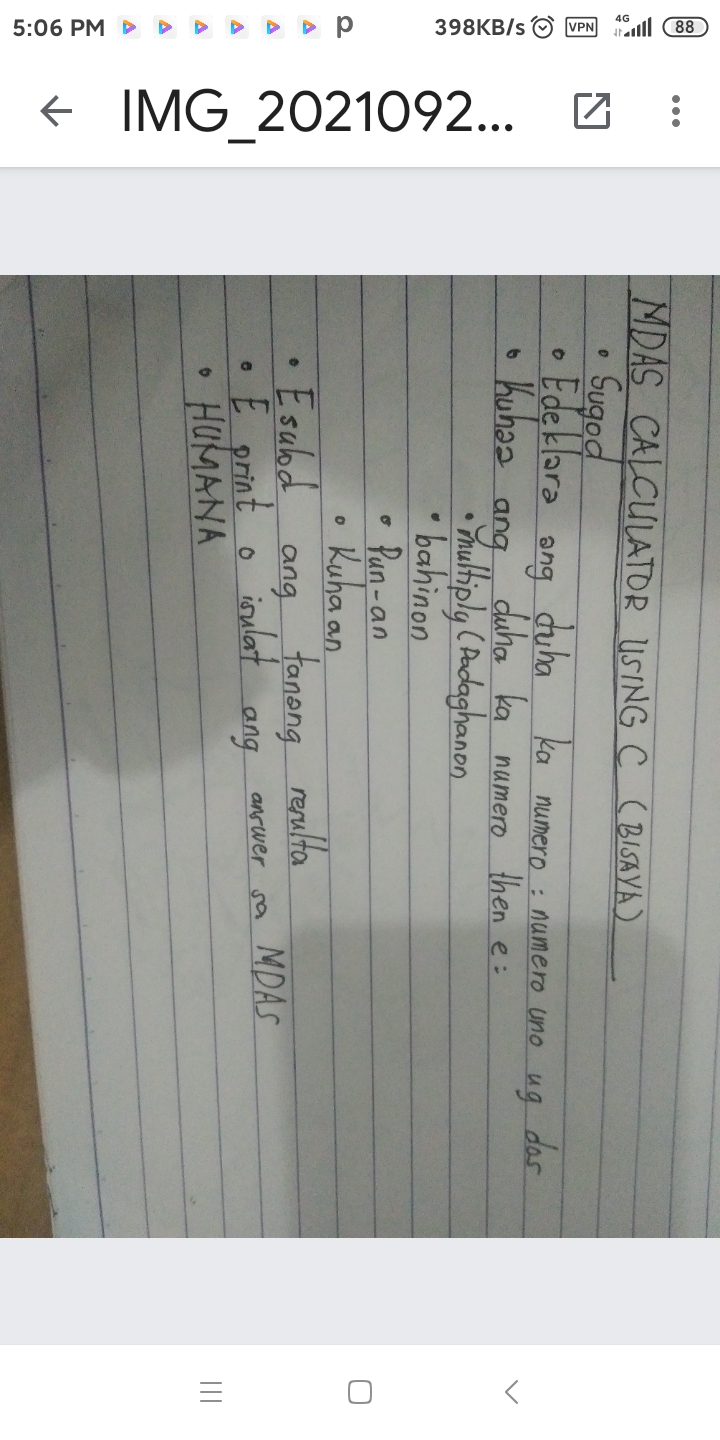 5:06 PM p 398KB/s VPN 4G 88
IMG_2021092...
MDAS CALCULATOR USING C (BISAYA)
• Sugod
• Edeklara ang duha ka numero : numero uno ug dos
• Kuhaa ang duha ka numero then e :
• multiply (Padaghanon
• bahinon
• Pun-an
• Kuhaan
• Esulod ang tanang resulta
• E print o isulat ang answer sa MDAS
• HUMANA